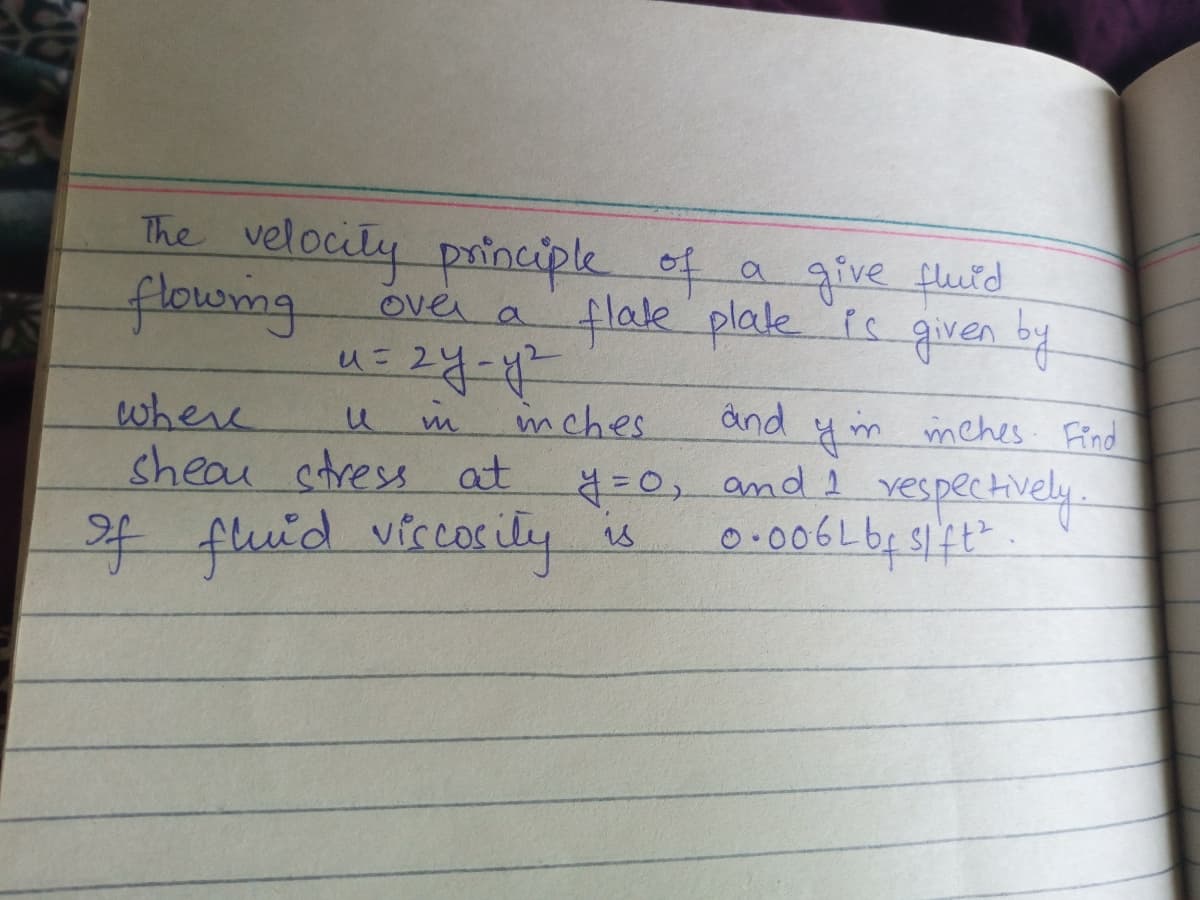 The velocity principle of a give fluid
flowing over a flate plate is given by
u = 2y - y²
where u in inches and y in inches. Find
shear stress at y = 0, and 1 respectively.
If fluid viscosity is 0.006 Lbf s/ft².